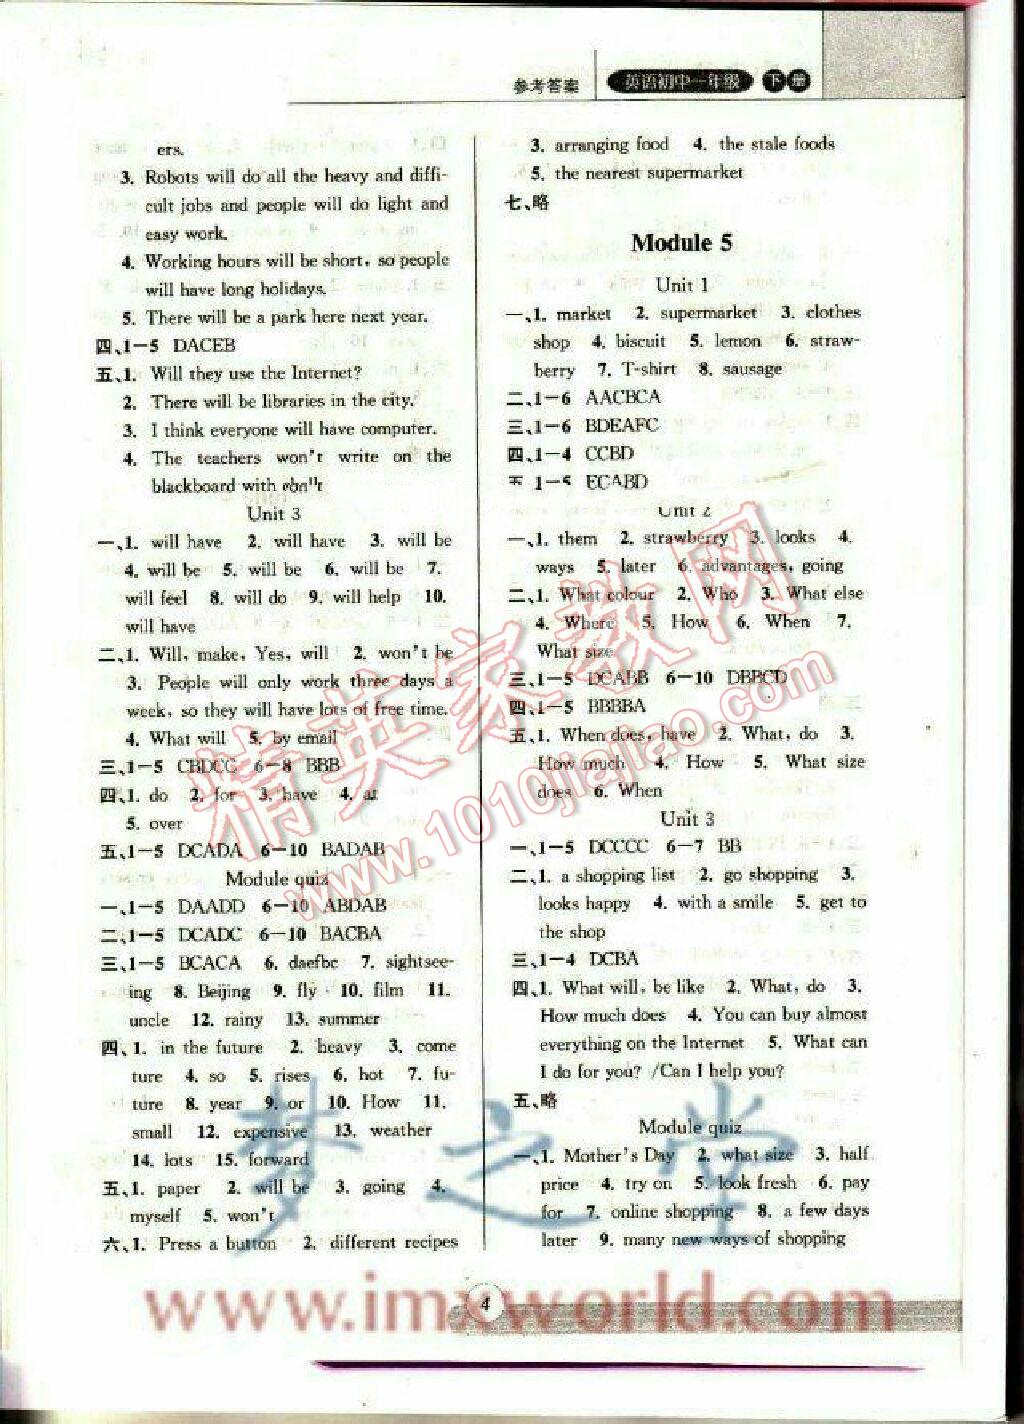 参考答案
英语初中一年级 下册
ers.
3. Robots will do all the heavy and diffi-
cult jobs and people will do light and
easy work.
4. Working hours will be short, so people
will have long holidays.
5. There will be a park here next year.
四、1—5 DACEB
五、1. Will they use the Internet?
2. There will be libraries in the city.
3. I think everyone will have computer.
4. The teachers won't write on the
blackboard with
Unit 3
一、1. will have 2. will have 3. will be
4. will be 5. will be 6. will be 7.
will feel 8. will do 9. will help 10.
will have
二、1. Will, make, Yes, will 2. won't be
3. People will only work three days a
week, so they will have lots of free time.
4. What will 5. by email
三、1—5 CBDCC 6—8 BBB
四、1. do 2. for 3. have 4. at
5. over
五、1—5 DCADA 6—10 BADAB
Module quiz
一、1—5 DAADD 6—10 ABDAB
二、1—5 DCADC 6—10 BACBA
三、1—5 BCACA 6. daefbc 7. sightsee-
ing 8. Beijing 9. fly 10. film 11.
uncle 12. rainy 13. summer
四、1. in the future 2. heavy 3. come
ture 4. so 5. rises 6. hot 7. fu-
ture 8. year 9. or 10. How 11.
small 12. expensive 13. weather
14. lots 15. forward
五、1. paper 2. will be 3. going 4.
myself 5. won't
六、1. Press a button 2. different recipes
3. arranging food 4. the stale foods
5. the nearest supermarket
七、略
Module 5
Unit 1
一、1. market 2. supermarket 3. clothes
shop 4. biscuit 5. lemon 6. straw-
berry 7. T-shirt 8. sausage
二、1—6 AACBCA
三、1—6 BDEAFC
四、1—4 CCBD
五 1—5 ECABD
Unit 2
一、1. them 2. strawberry 3. looks 4.
ways 5. later 6. advantages, going
二、1. What colour 2. Who 3. What else
4. Where 5. How 6. When 7.
What size
三、1—5 DCABB 6—10 DBBCD
四、1—5 BBBBA
五、1. When does, have 2. What, do 3.
How much 4. How 5. What size
does 6. When
Unit 3
一、1—5 DCCCC 6—7 BB
二、1. a shopping list 2. go shopping 3.
looks happy 4. with a smile 5. get to
the shop
三、1—4 DCBA
四、1. What will, be like 2. What, do 3.
How much does 4. You can buy almost
everything on the Internet 5. What can
I do for you? /Can I help you?
五、略
Module quiz
一、1. Mother's Day 2. what size 3. half
price 4. try on 5. look fresh 6. pay
for 7. online shopping 8. a few days
later 9. many new ways of shopping
4
精英家教网
www.1010jiajiao.com
梦之堂
www.imxworld.com